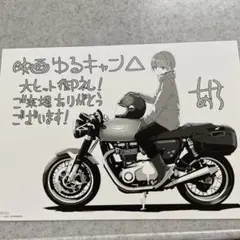 映画ゆるキャン△
大ヒット御礼!
ご来場ありがとう
ございます!